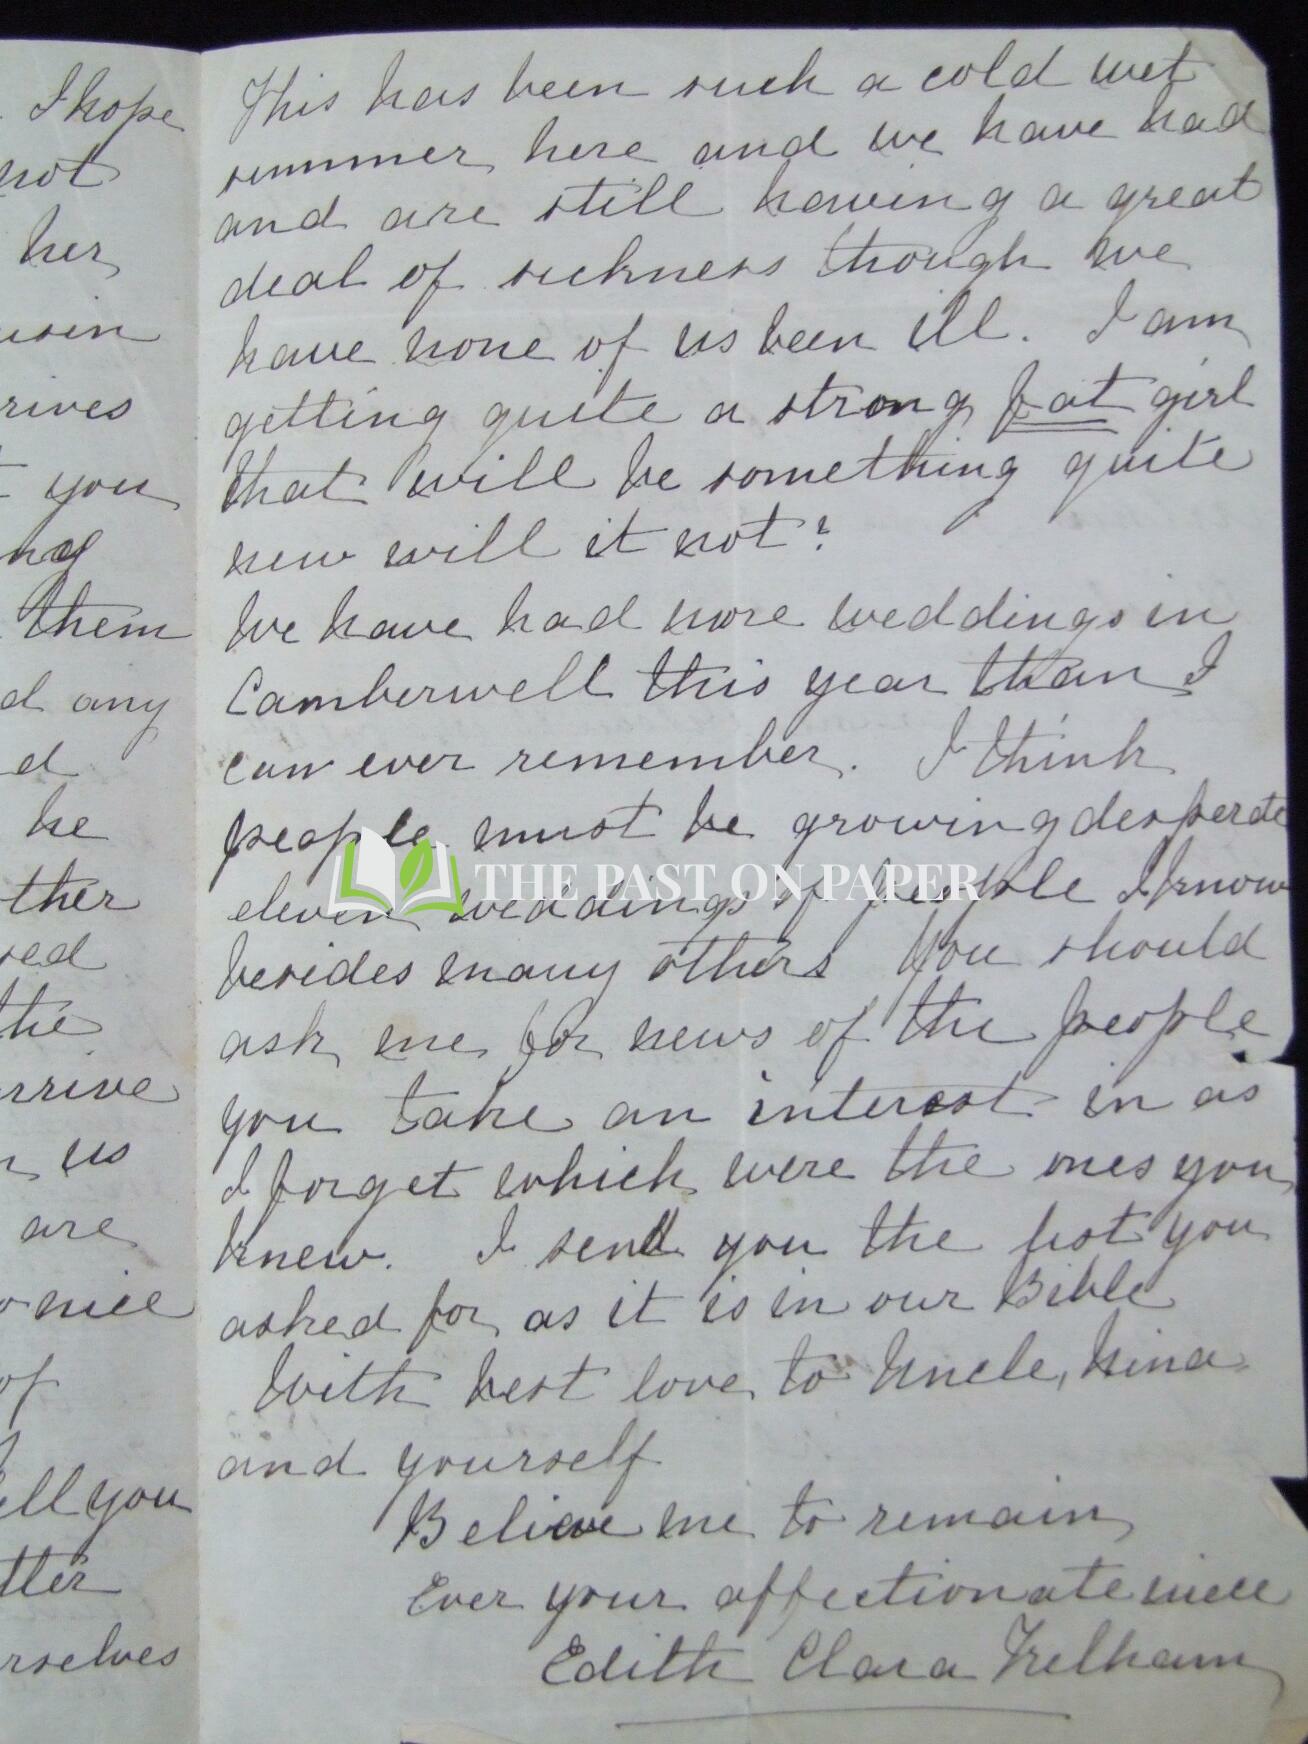 I hope
not
her
usin
rives
you
ng
them
d any
d
he
ther
sed
the
rrive
us
are
nice
of
ell you
tter
rselves
This has been such a cold wet
summer here and we have had
and are still having a great
deal of sickness though we
have none of us been ill. I am
getting quite a strong fat girl
that will be something quite
new will it not?
We have had more weddings in
Camberwell this year than I
can ever remember. I think
people must be growing desperate
eleven weddings of people I know
besides many others You should
ask me for news of the people
you take an interest in as
I forget which were the ones you
knew. I send you the list you
asked for as it is in our Bible
With best love to Uncle, Nina
and yourself
Believe me to remain
Ever your affectionate niece
Edith Clara Trelham
THE PAST ON PAPER